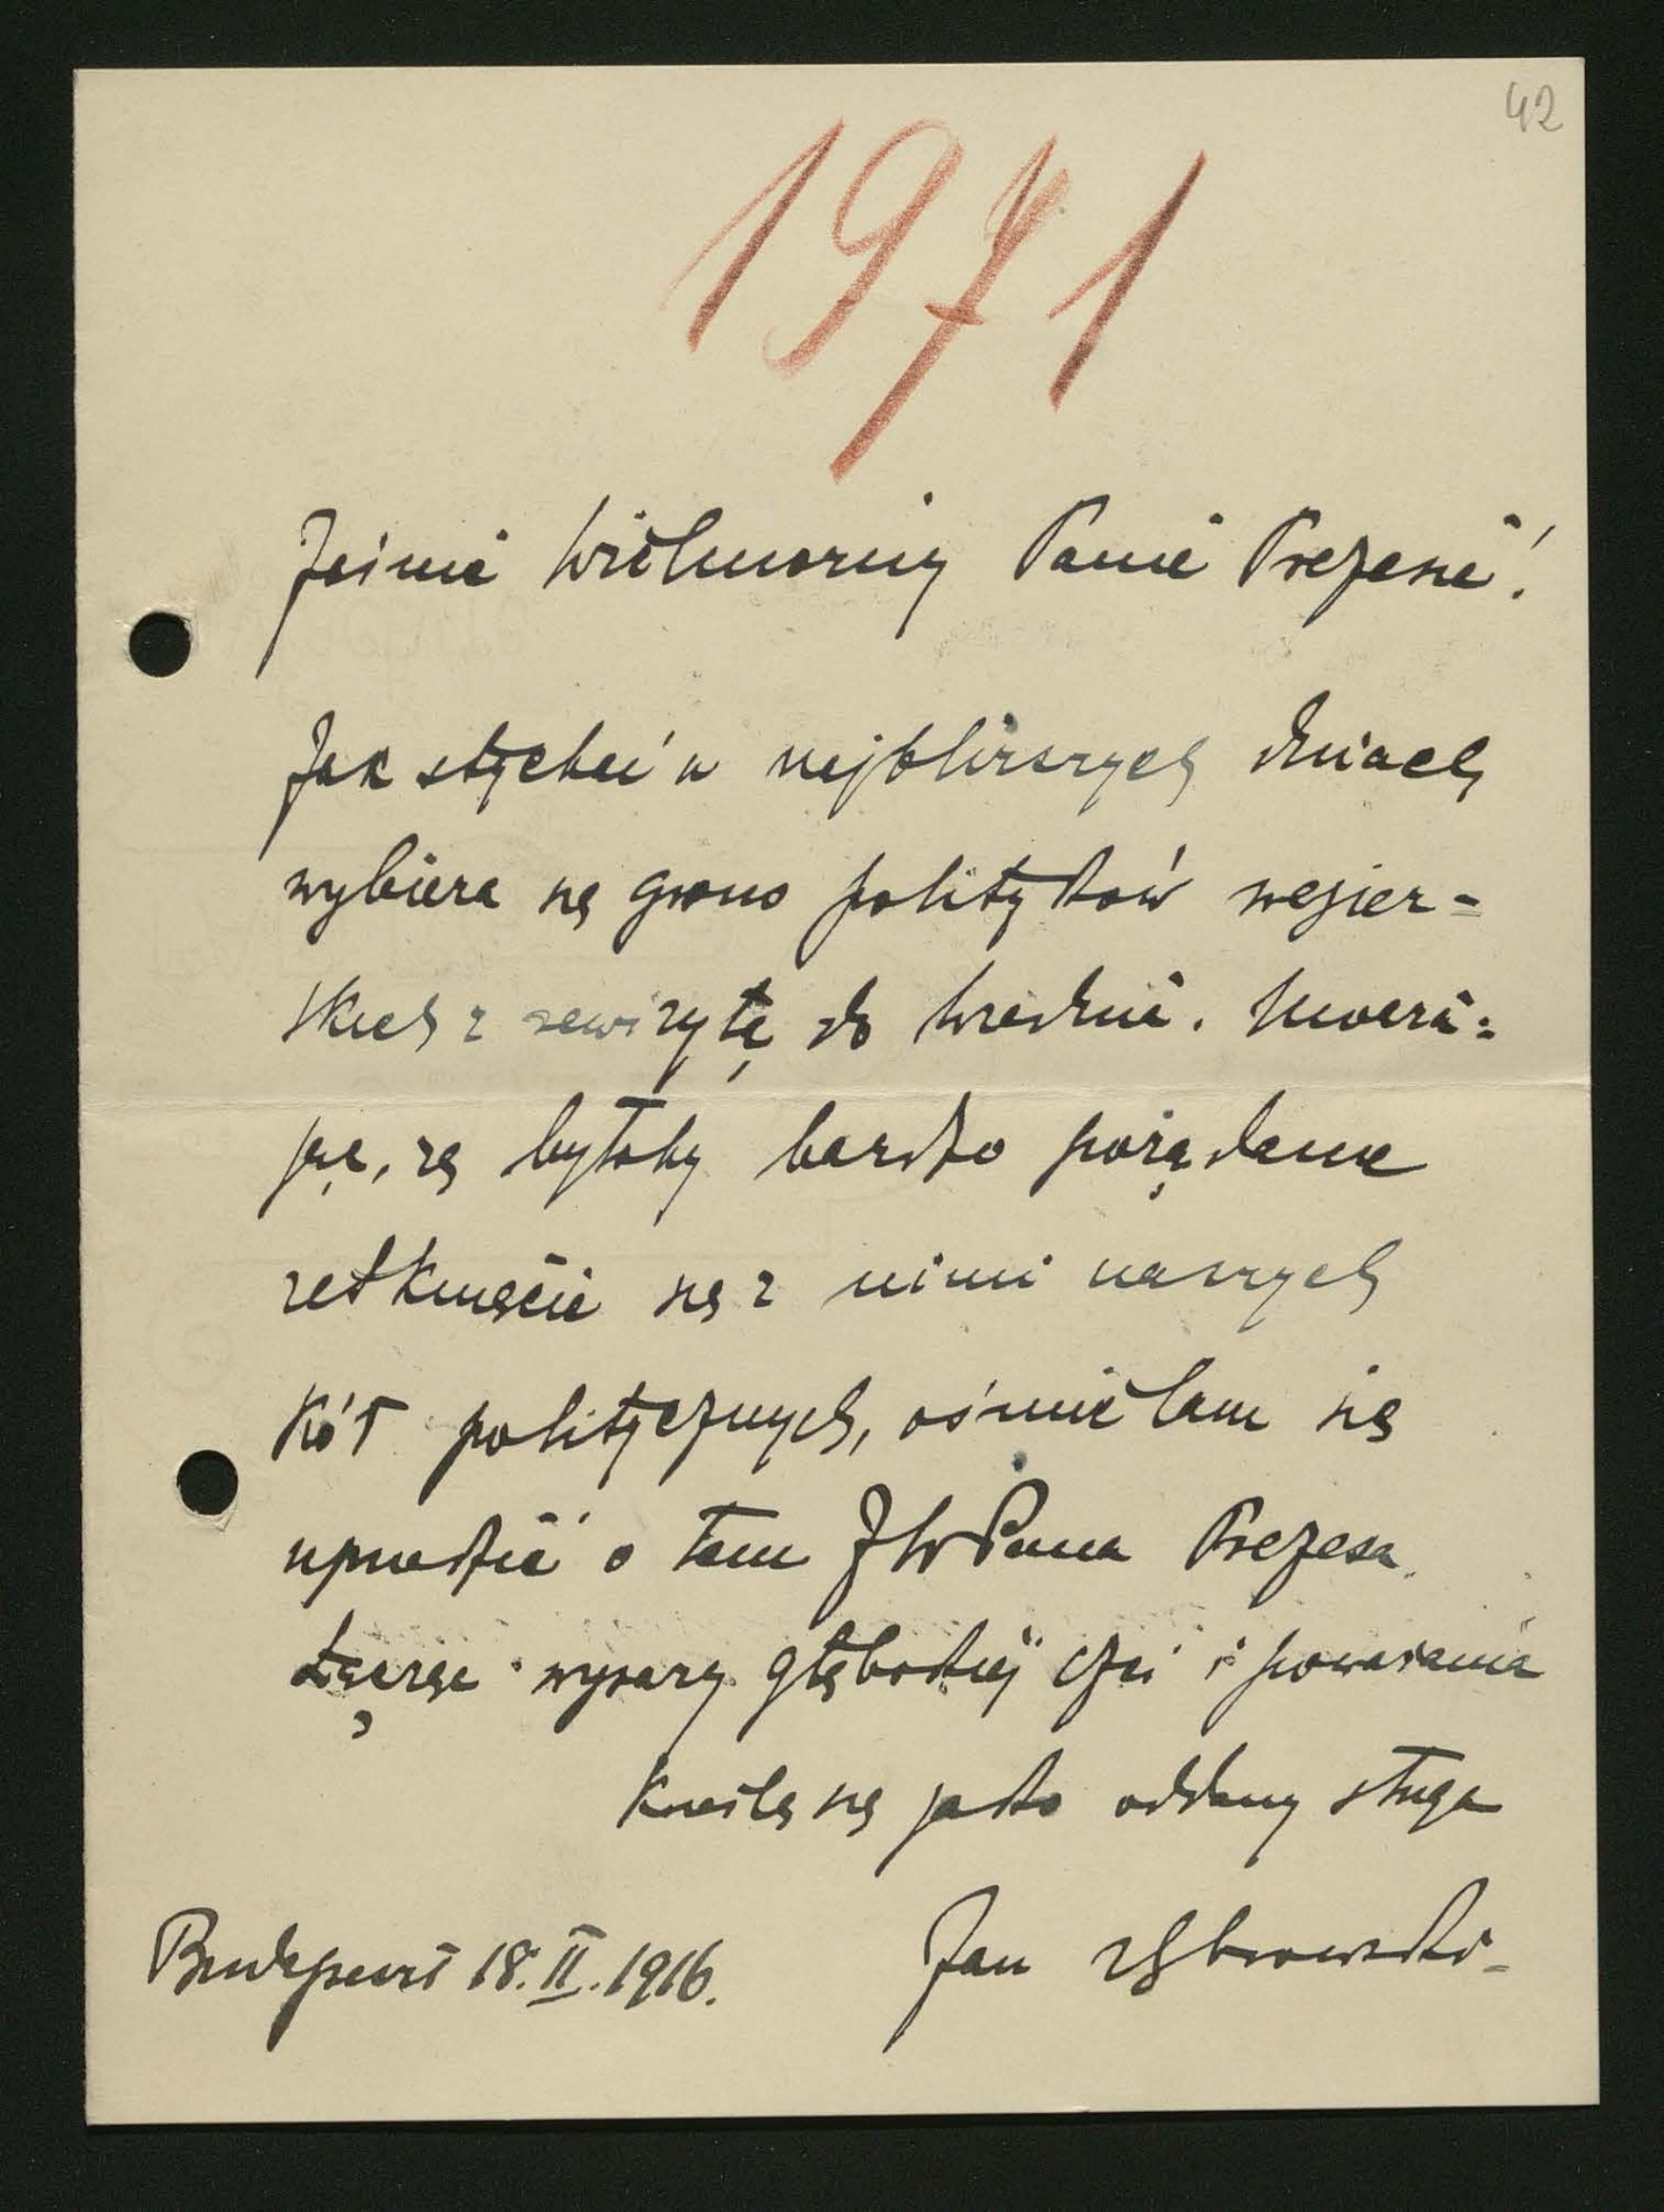 42
1971
Jaśnie Wielmożny Panie Prezesie!
Jak słychać w najbliższych dniach
wybiera się grono polityków węgier-
skich z rewizytą do Wiednia. Uważa-
jąc, że byłoby bardzo pożądane
zetknięcie się z nimi naszych
kół politycznych, ośmielam się
uprzedzić o tem JWPana Prezesa.
Łącząc wyrazy głębokiej czci i poważania
kreślę się jako oddany sługa
Budapeszt 18.II.1916.
Jan Dąbrowski